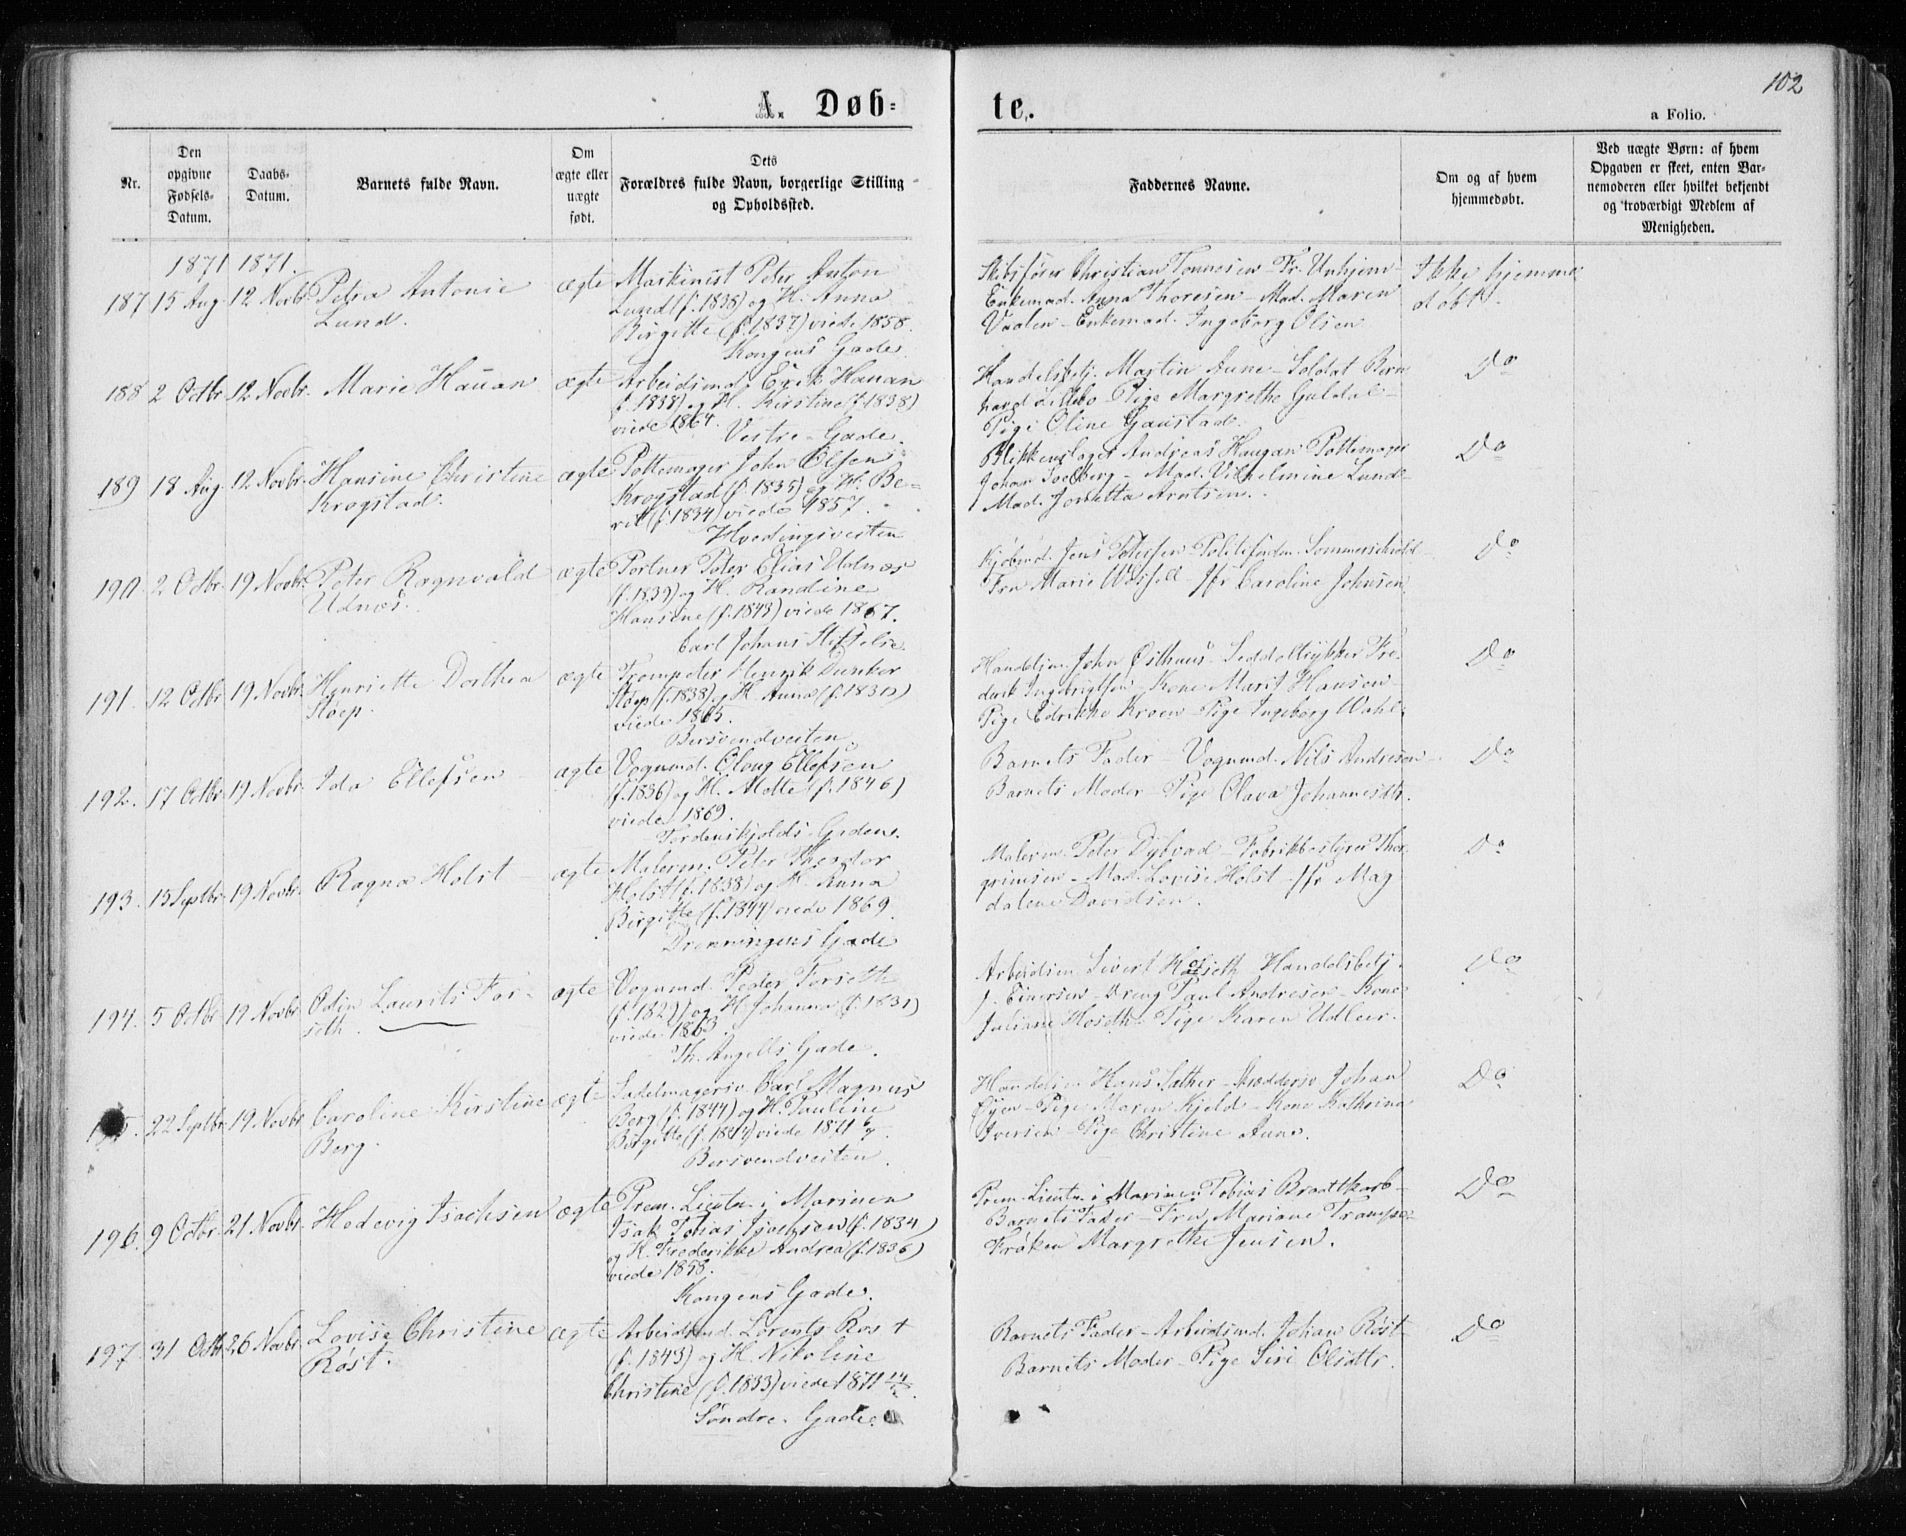 102
A. Døb-
te.
a Folio.
Nr.
Den
opgivne
Fødsels-
Datum.
Daabs-
Datum.
Barnets fulde Navn.
Om
ægte eller
uægte
født.
Dets
Forældres fulde Navn, borgerlige Stilling
og Opholdssted.
Faddernes Navne.
Om og af hvem
hjemmedøbt.
Ved uægte Børn: af hvem
Opgaven er skeet, enten Bar-
nemoderen eller hvilket bekjendt
og troværdigt Medlem af
Menigheden.
1871 1871.
187 15 Aug. 12 Novbr. Petra Antonie
Lund.
ægte
Maskinist Peter Anton
Lund (f. 1838) og H. Anna
Birgitte (f. 1837) viede 1858.
Kongens Gade.
Skibsfører Christian Tønnesen - Fr. Unhjem -
Enkemad. Anna Thoresen - Mad. Maren
Vaden - Enkemad. Ingeborg Olsen
Ikke hjemme
døbt.
188 2 Octbr. 12 Novbr. Marie Hauan
ægte
Arbeidsmd. Erik Hauan
(f. 1838) og H. Kirstine (f. 1838)
viede 1864.
Vestre Gade.
Handelsbetj. Martin Aune - Soldat Bern
hard - Pige Margrethe Guldal -
Pige Oline Gaustad.
Do
189 18 Aug. 12 Novbr. Hansine Christine
Krogstad.
ægte
Pottemager John Olsen
Krogstad (f. 1835) og H. Be-
rit (f. 1834) viede 1857.
Hvedingsveiten
Blikkenslager Andreas Haugan Pottemager
Johan - Mad. Vilhelmine Lund -
Mad. Jonetta Arntsen.
Do
190. 2 Octbr. 19 Novbr. Peter Ragnvald
Udnæs.
ægte
Portner Peter Elias Udnæs
(f. 1839) og H. Randine
Hansine (f. 1843) viede 1867.
Carl Johans Stiftelse.
Kjøbmd. Jens Petersen - Politifuldm. Sommerschield
Fru Marie Wessell Jfr Caroline Johnsen.
Do
191. 12 Octbr. 19 Novbr. Henriette Dorthea
Støep.
ægte
Trompeter Henrik Dunker
Støep (f. 1838) og H. Anna (f. 1830)
viede 1865.
Bersvendveiten.
Handelsm. John Østhuus - Seddeltrykker Fre-
derik Ingebrigtsen - Kone Marit Hansen -
Pige Edrikke Kroen - Pige Ingeborg Wahl.
Do
192. 17 Octbr. 19 Novbr. Ida Ellefsen
ægte
Vognmd. Oloug Ellefsen
(f. 1836) og H. Mette (f. 1846)
viede 1869.
Tordenskjolds Gaden.
Barnets Fader - Vognmd. Nils Andresen -
Barnets Moder - Pige Olava Johannesdtr.
Do
193. 15 Septbr. 19 Novbr. Ragna Holst
ægte
Malerm. Peter Theodor
Holst (f. 1838) og H. Anna
Birgitte (f. 1844) viede 1869.
Dronningens Gade
Malerm. Peter Dybvad - Fabrikbestyrer Thor-
grimsen - Mad. Lovise Holst - Jfr Mag
dalene Davidsen.
Do
194. 5 Octbr. 19 Novbr. Odin Laurits For-
seth.
ægte
Vognmd. Peder Forseth
(f. 1829) og H. Johanna (f. 1831)
viede 1863.
Th. Angells Gade.
Arbeidsm. Sivert Hoseth Handelsbetj.
J. Einersen - Dreng Paul Andresen - Kone
Juliane Hoseth - Pige Karen Udleer.
Do
195. 22 Septbr. 19 Novbr. Caroline Kirstine
Berg.
ægte
Sadelmagersv. Carl Magnus
Berg (f. 1844) og H. Pauline
Birgitte (f. 1844) viede 1871 6/7.
Bersvendveiten.
Handelsm. Hans Sather - Skræddersv. Johan
Øyen - Pige Maren Kjeld - Kone Kathrina
Iversen - Pige Christine Aune.
Do
196. 9 Octbr. 21 Novbr. Hedevig Isachsen
ægte
Prem. Lieutn. i Marinen
Isak Tobias Isachsen (f. 1834)
og H. Frederikke Andrea (f. 1836)
viede 1858.
Kongens Gade.
Prem. Lieutn. i Marinen Tobias Braadtkorb -
Barnets Fader - Fru Mariane Trampe -
Frøken Margrethe Jensen.
Do
197. 31 Octbr. 26 Novbr. Lovise Christine
Røst.
ægte
Arbeidsmd. Lorents Røst
(f. 1843) og H. Nikoline
Christine (f. 1833) viede 1871
Søndre Gade.
Barnets Fader - Arbeidsmd. Johan Røst -
Barnets Moder - Pige Siri Olsdtr.
Do